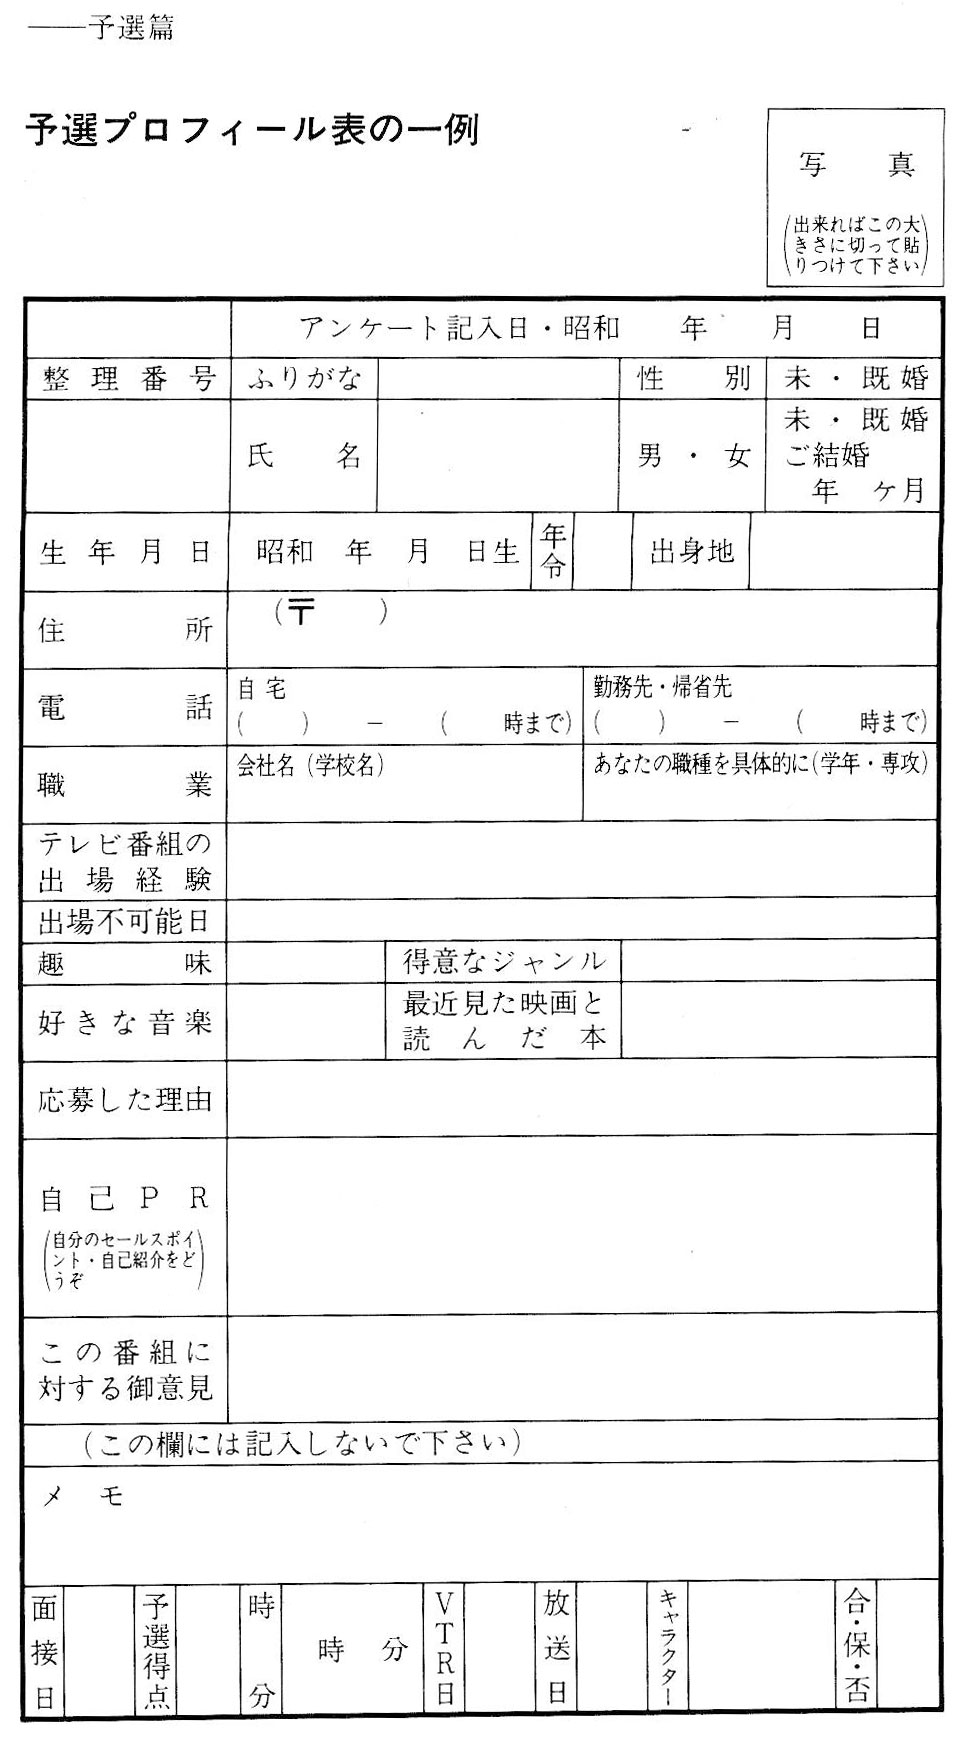 ――予選篇
予選プロフィール表の一例
写 真
(出来ればこの大
きさに切って貼
りつけて下さい)
アンケート記入日・昭和 年 月 日
整理番号 ふりがな 性 別 未・既婚
氏 名 男・女 未・既婚
ご結婚
年 ケ月
生年月日 昭和 年 月 日生 年令 出身地
住 所 (〒 )
電 話 自宅 勤務先・帰省先
( ) － ( 時まで) ( ) － ( 時まで)
職 業 会社名(学校名) あなたの職種を具体的に(学年・専攻)
テレビ番組の
出場経験
出場不可能日
趣 味 得意なジャンル
好きな音楽 最近見た映画と
読んだ本
応募した理由
自己PR
(自分のセールスポイ
ント・自己紹介をど
うぞ)
この番組に
対する御意見
(この欄には記入しないで下さい)
メ モ
面接日 予選得点 時分 時 分 VTR日 放送日 キャラクター 合・保・否